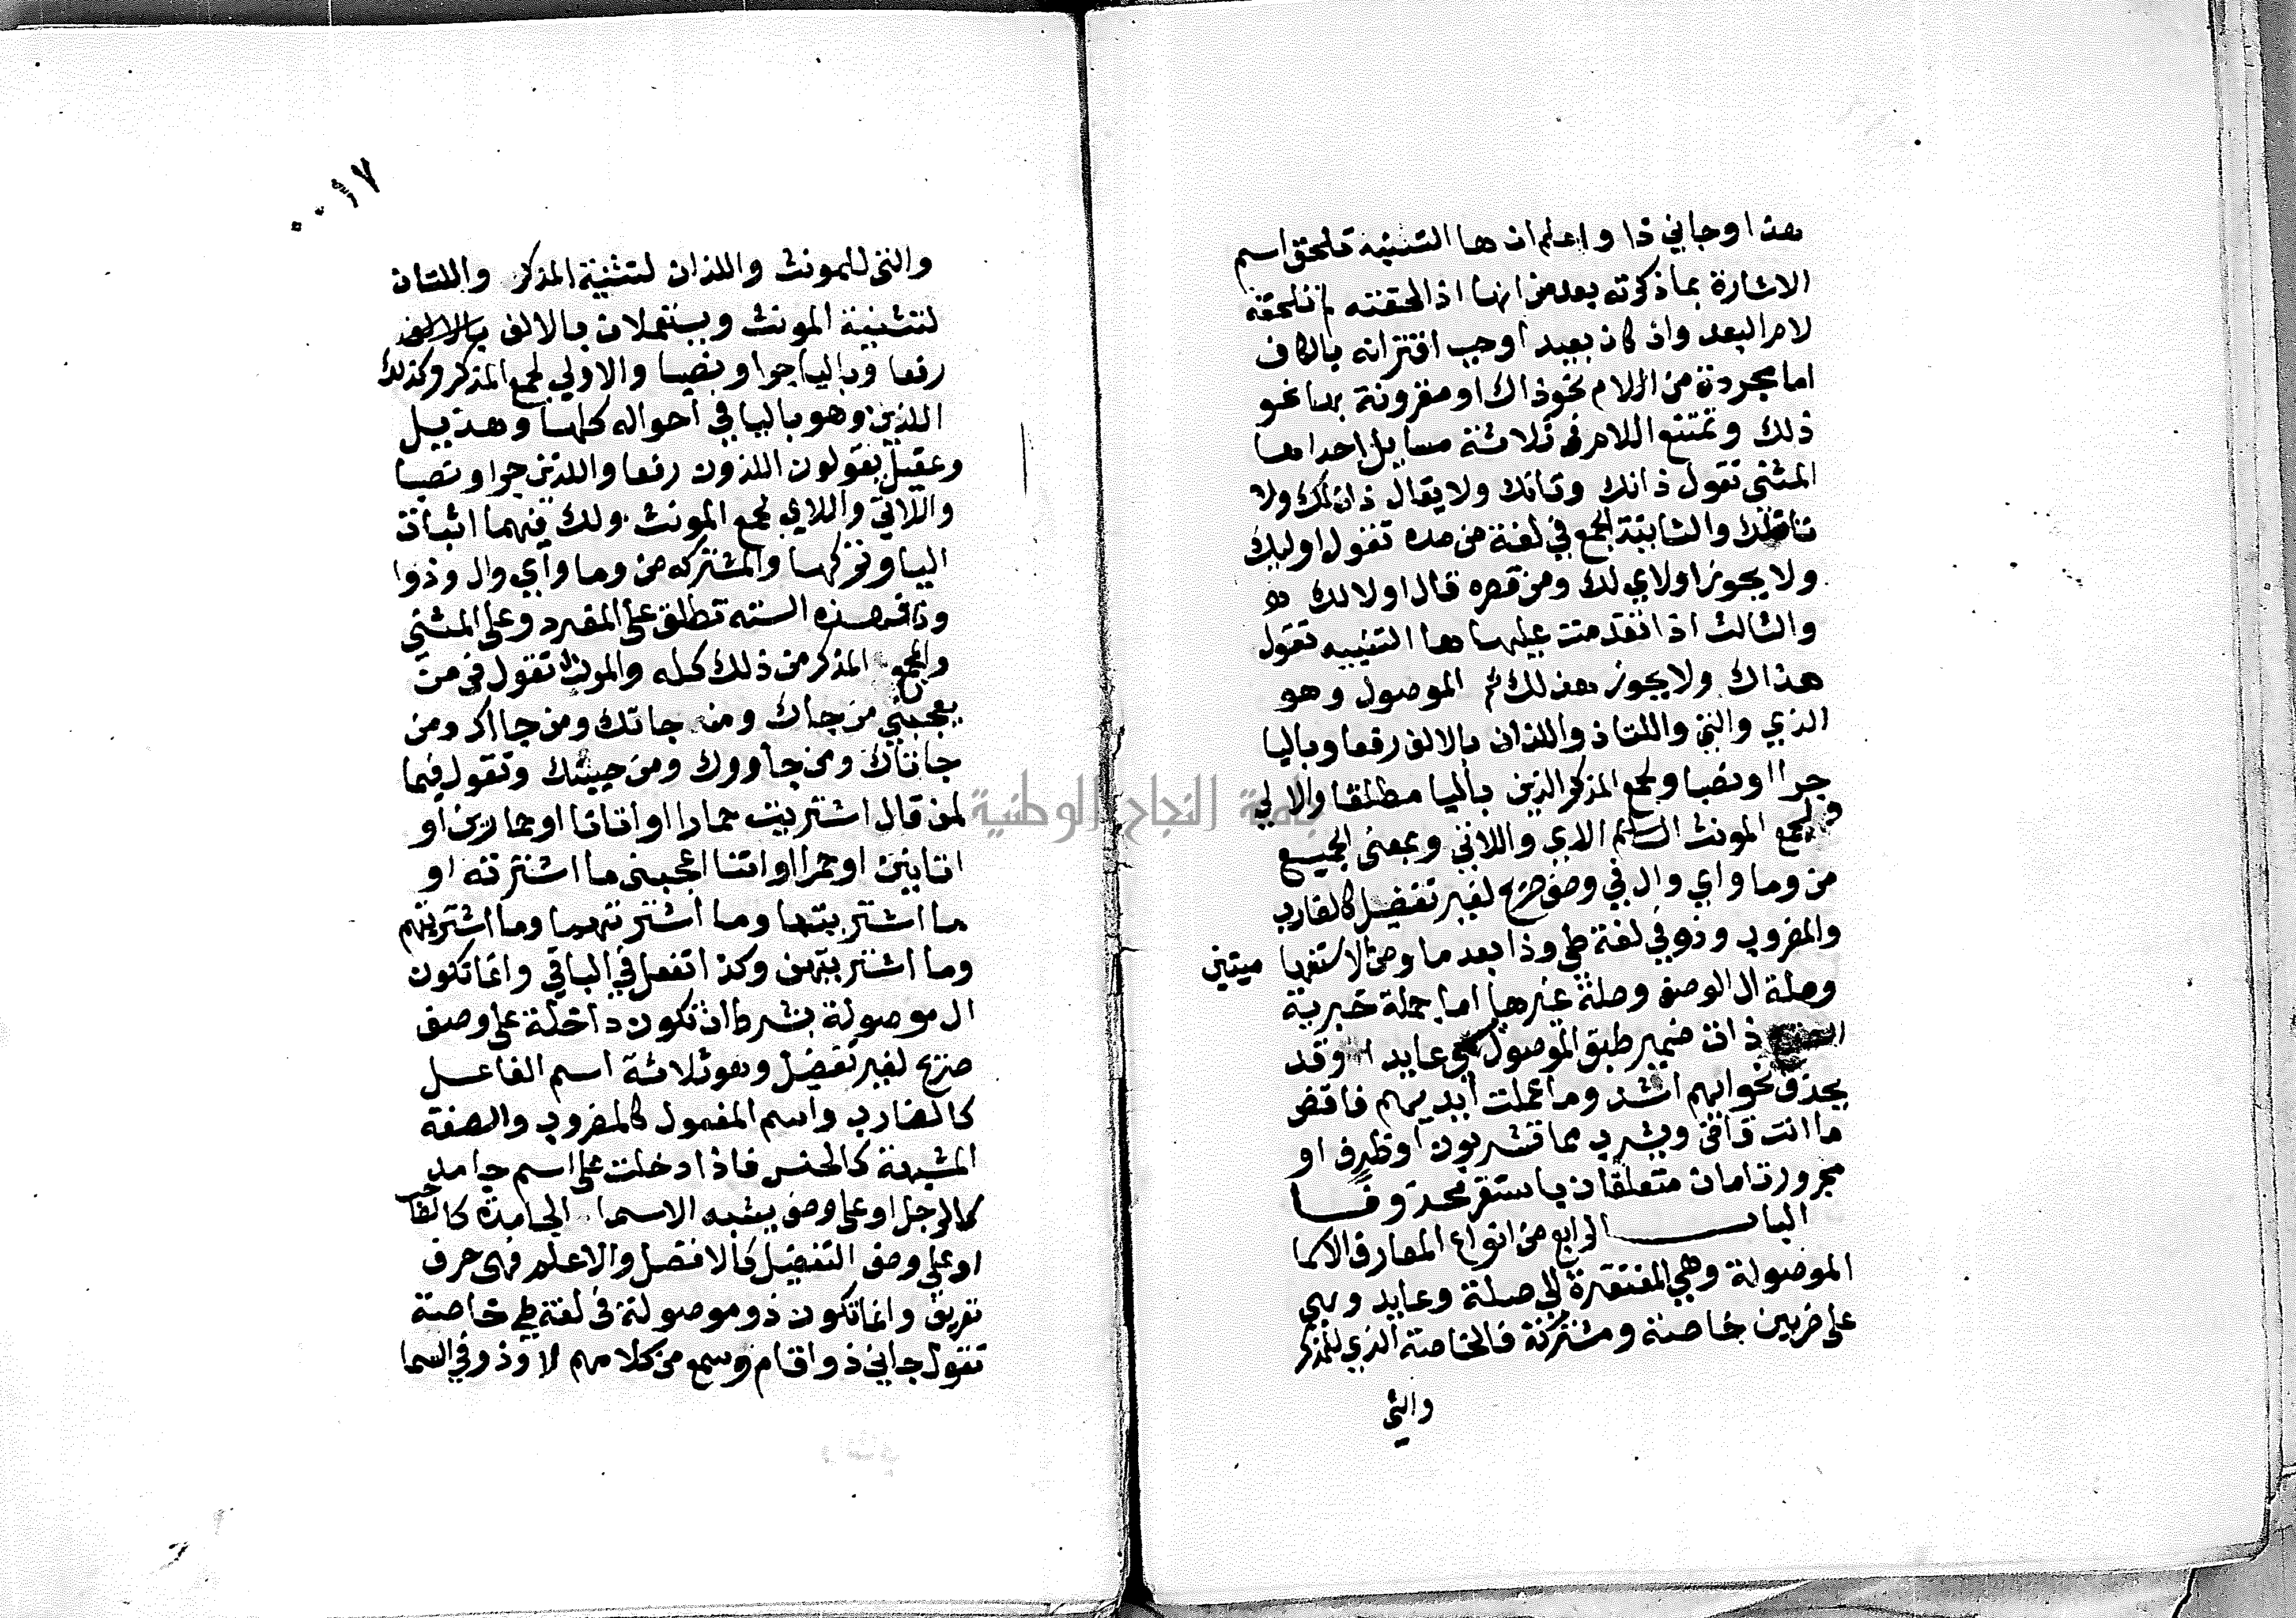 هذا وجاني ذا واعلم ان ها التنبيه تلحق اسم
الاشارة بما ذكرته بعد من انها اذا لحقته لم تلحقه
لام البعد وان كان بعيد اوجب اقترانه بالكاف
اما مجردة من اللام نحو ذاك او مقرونة بها نحو
ذلك وتمتنع اللام في ثلاثة مسايل احداها
المثنى تقول ذانك وتانك ولا يقال ذان لك ولا
تان لك والثانية الجمع في لغة من مده تقول اوليك
ولا يجوز اولاي لك ومن قصره قال اولالك
والثالث اذا تقدمت عليها ها التنبيه تقول
هذاك ولا يجوز هذلك ثم الموصول وهو
الذي والتي واللتان واللذان بالالف رفعا وباليا
جرا ونصبا ولجمع المذكر الذين باليا مطلقا والالي
ولجمع المونث السالم اللاي واللاتي وبمعنى الجميع
من وما واي وال في وصف صريح لغير تفضيل كالضارب
والمضروب وذو في لغة طي وذا بعد ما ومن الاستفها ميتين
وصلة ال الوصف وصلة غيرها اما جملة خبرية
ذات ضمير طبق الموصول عايد وقد
يحذف نحو ايهم اشد وما عملت ايديهم فاقض
ما انت قاض ويشرب مما تشربون او ظرف او
مجرور تامان متعلقان باستقر محذوفا
الباب الرابع من انواع المعارف الاسما
الموصولة وهي المفتقرة الى صلة وعايد وهي
على ضربين خاصة ومشتركة فالخاصة الذي للمذكر
والتي
١٧
والتي للمونث واللذان لتثنية المذكر واللتان
لتثنية المونث ويستعملان بالالف بالالف
رفعا وباليا جرا ونصبا والاولي لجمع المذكر وكذلك
اللذين وهو باليا في احواله كلها وهذيل
وعقيل يقولون اللذون رفعا واللذين جرا ونصبا
واللاتي واللاي لجمع المونث ولك فيهما اثبات
اليا وتركها والمشتركه من وما واي وال وذوا
وذا فهذه الستة تطلق على المفرد وعلى المثنى
والجمع المذكر من ذلك كله والمونث تقول في من
يعجبني من جاك ومن جاتك ومن جااك ومن
جاتاك ومن جاووك ومن جينك وتقول فيما
لمن قال اشتريت حمارا او اتانا او حمارين او
اتانين او حمرا او اتنا اعجبني ما اشتريته او
ما اشتريتها وما اشتريتهما وما اشتريتهم
وما اشتريتهن وكذا تفعل في الباقي وانما تكون
ال موصولة بشرط ان تكون داخلة على وصف
صريح لغير تفضيل وهو ثلاثة اسم الفاعل
كالضارب واسم المفعول كالمضروب والصفة
المشبهة كالحسن فاذا دخلت على اسم جامد
كالرجل او على وصف يشبه الاسما الجامدة كالصاحب
او على وصف التفضيل كالافضل والاعلم فهي حرف
تعريف وانما تكون ذو موصولة في لغة طي خاصة
تقول جاني ذو اقام وسمع من كلامهم لا وذو في السما
جامعة النجاح الوطنية